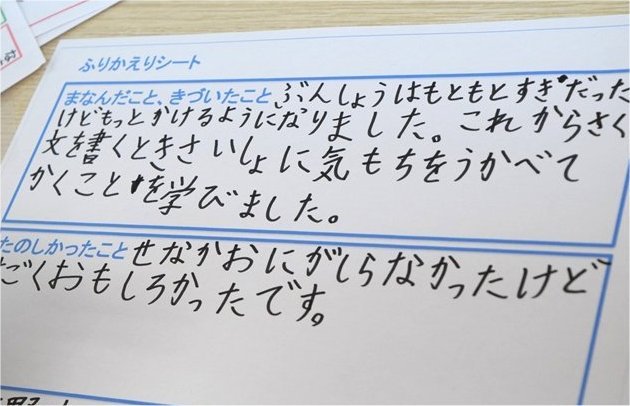 ふりかえりシート
まなんだこと、きづいたこと ぶんしょうはもともとすきだった
けどもっとかけるようになりました。これからさく
文を書くときさいしょに気もちをうかべて
かくことを学びました。
たのしかったこと せなかおにがしらなかったけど
ごくおもしろかったです。